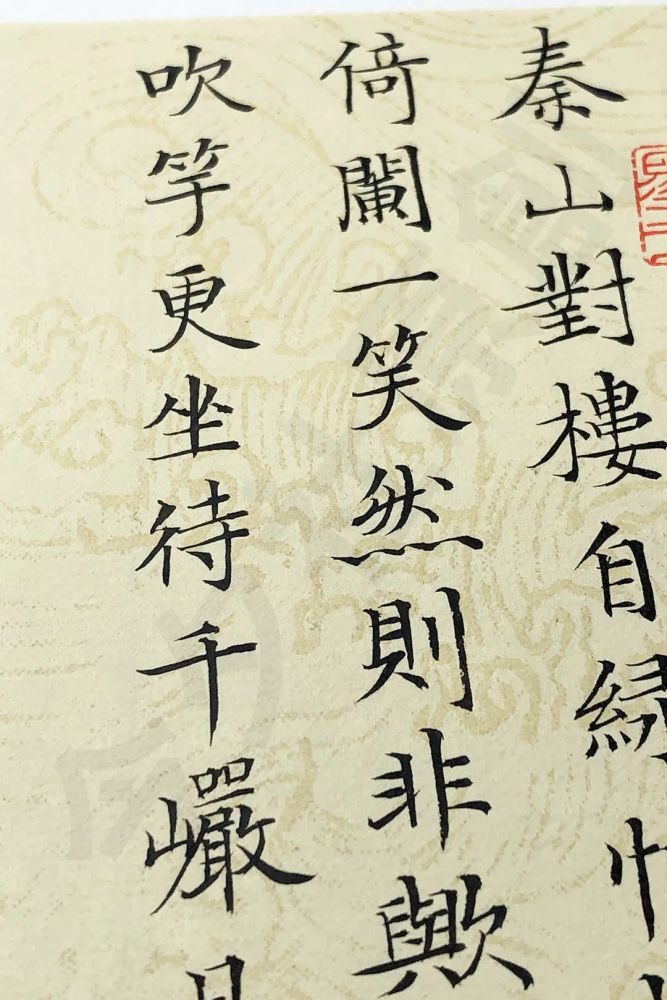 秦山對樓自緑
倚闌一笑然則非歟
吹竽更坐待千巗月